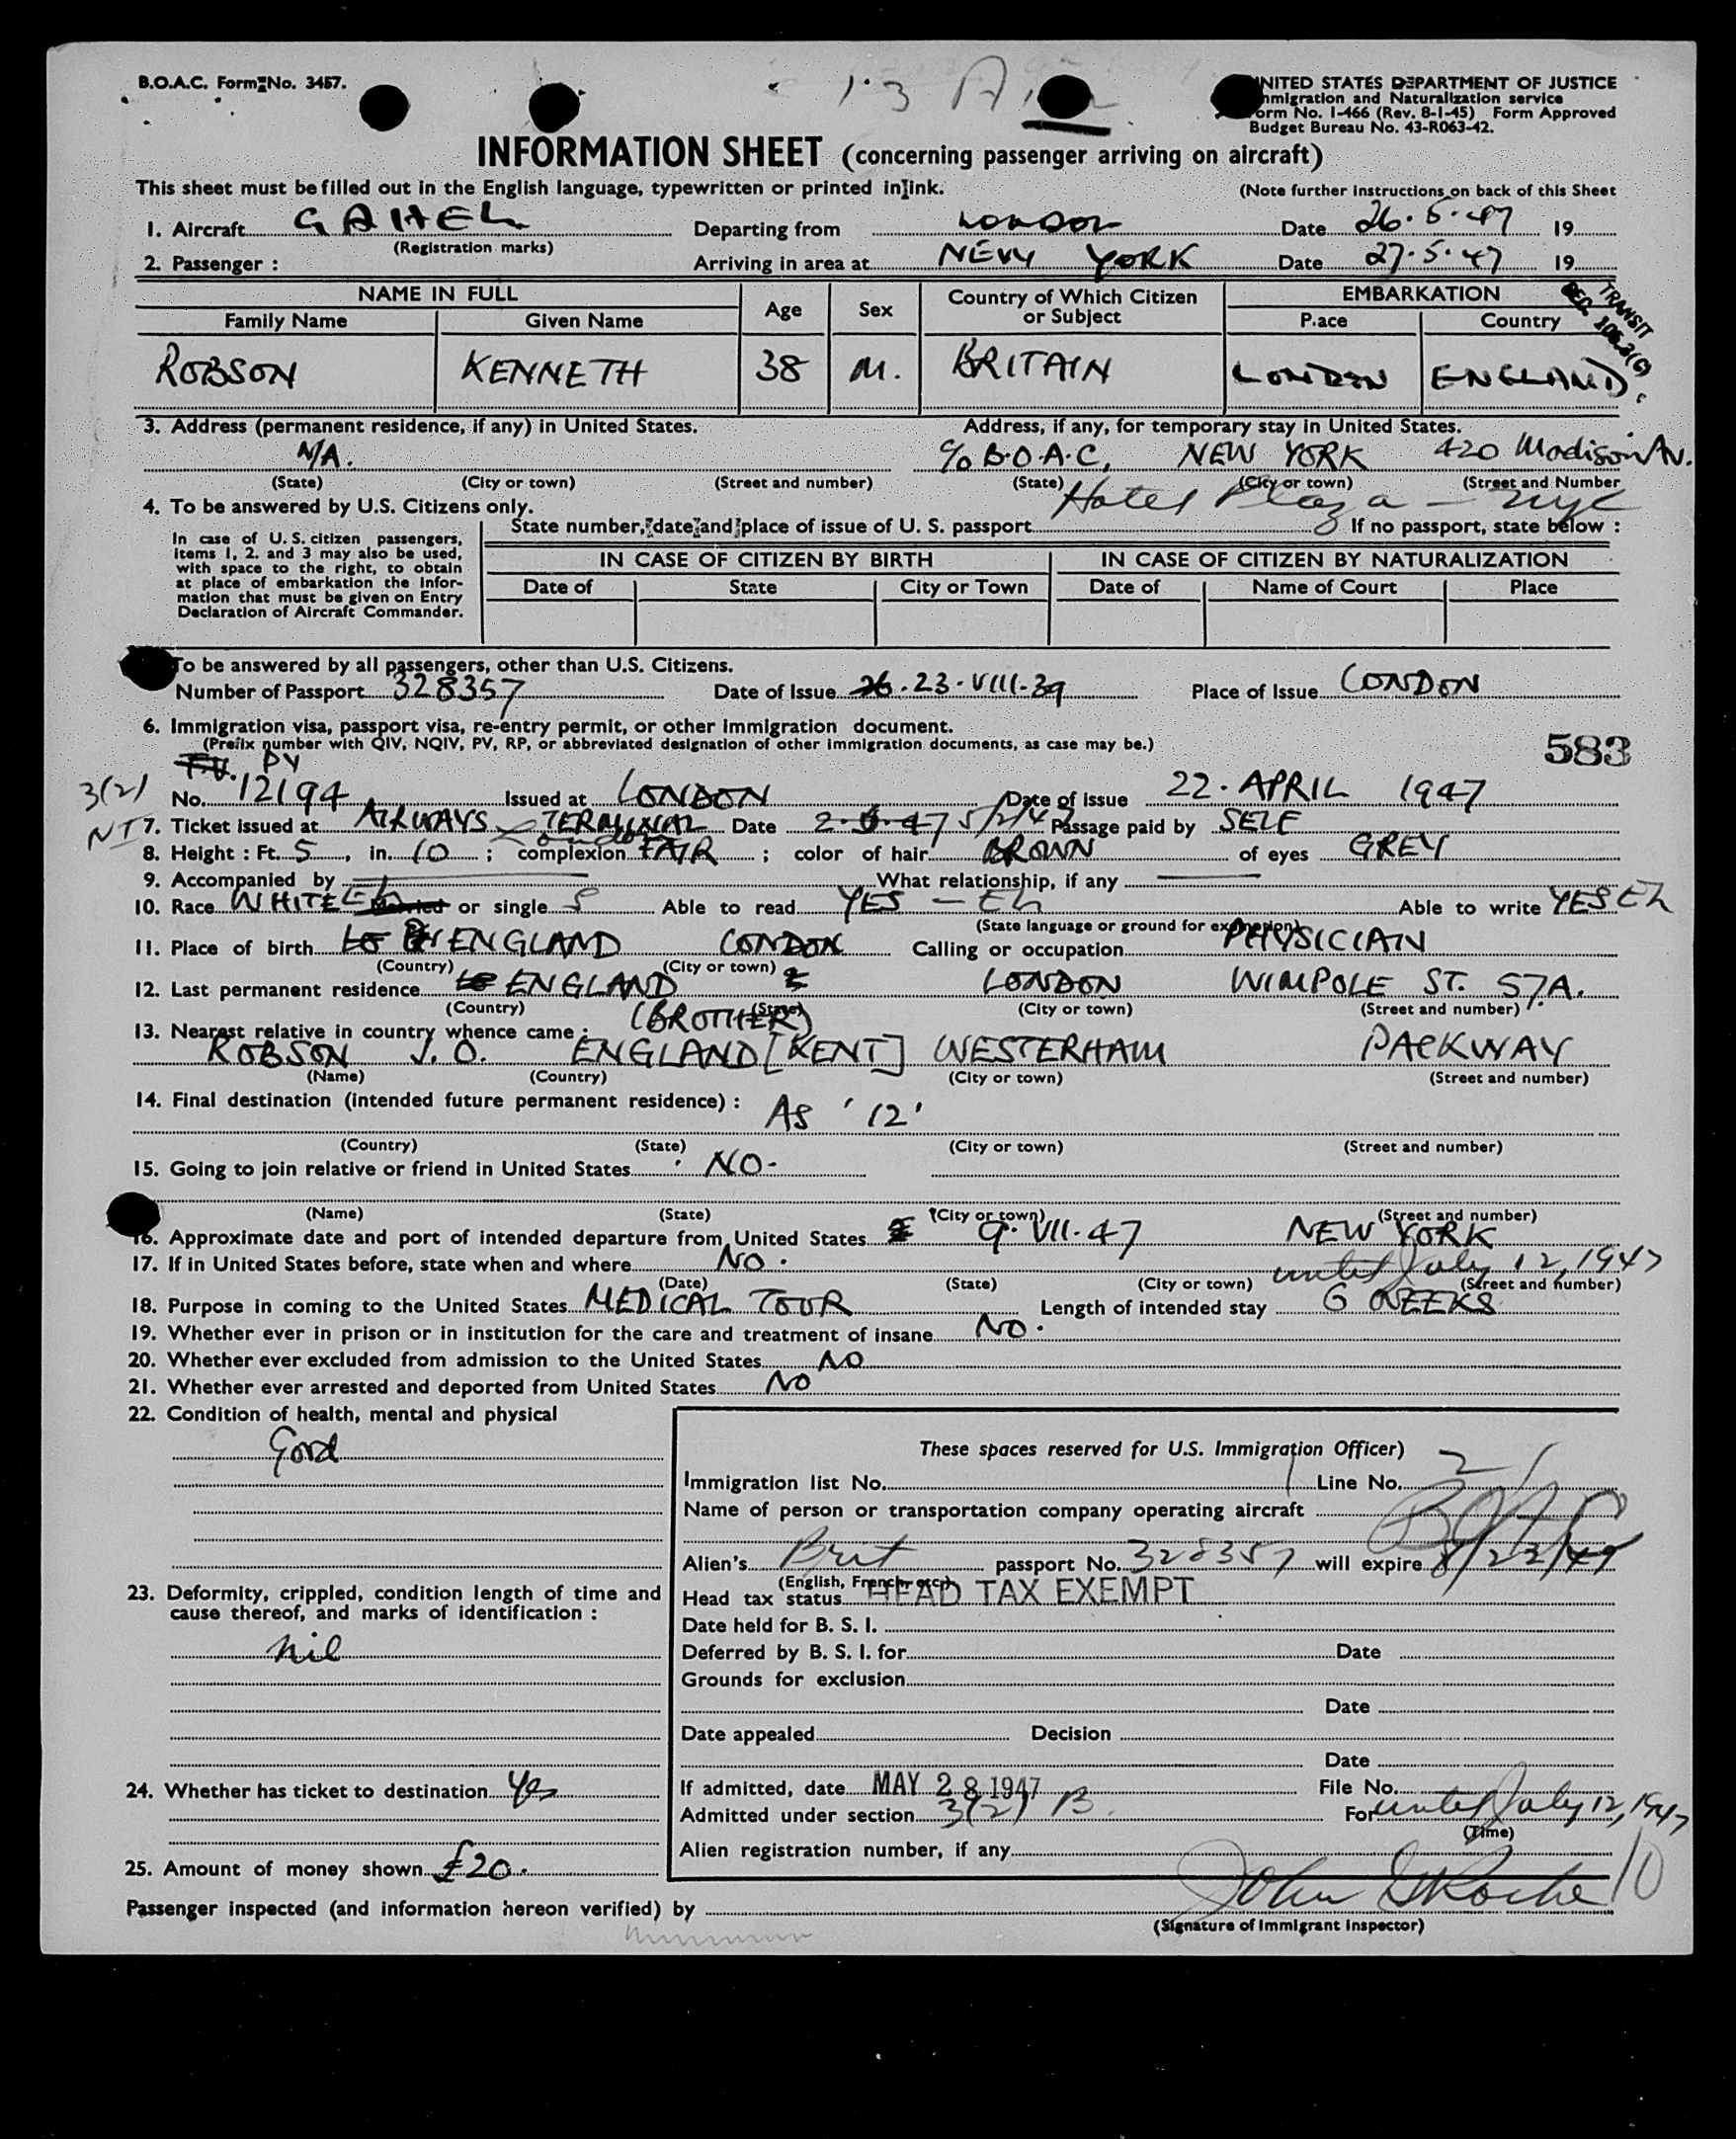 B.O.A.C. Form No. 3457.
UNITED STATES DEPARTMENT OF JUSTICE
Immigration and Naturalization service
Form No. I-466 (Rev. 8-1-45) Form Approved
Budget Bureau No. 43-R063-42.
INFORMATION SHEET (concerning passenger arriving on aircraft)
This sheet must be filled out in the English language, typewritten or printed in ink. (Note further instructions on back of this Sheet
1. Aircraft GAHEL Departing from LONDON Date 26.5.47 19
(Registration marks)
2. Passenger : Arriving in area at NEW YORK Date 27.5.47 19
TRANSIT
SEC. 106.3(c)
NAME IN FULL Age Sex Country of Which Citizen or Subject EMBARKATION
Family Name Given Name P.ace Country
ROBSON KENNETH 38 M. BRITAIN LONDON ENGLAND
3. Address (permanent residence, if any) in United States. Address, if any, for temporary stay in United States.
N/A. c/o B.O.A.C, NEW YORK 420 Madison Av.
(State) (City or town) (Street and number) (State) (City or town) (Street and Number
Hotel Plaza - nyc
4. To be answered by U.S. Citizens only.
State number, date and place of issue of U. S. passport If no passport, state below :
In case of U. S. citizen passengers,
items 1, 2. and 3 may also be used,
with space to the right, to obtain
at place of embarkation the infor-
mation that must be given on Entry
Declaration of Aircraft Commander.
IN CASE OF CITIZEN BY BIRTH IN CASE OF CITIZEN BY NATURALIZATION
Date of State City or Town Date of Name of Court Place
To be answered by all passengers, other than U.S. Citizens.
Number of Passport 328357 Date of Issue 26.23.VIII.39 Place of Issue LONDON
6. Immigration visa, passport visa, re-entry permit, or other immigration document.
(Prefix number with QIV, NQIV, PV, RP, or abbreviated designation of other immigration documents, as case may be.)
583
PV
3(2) No. 12194 Issued at LONDON Date of issue 22. APRIL 1947
NI 7. Ticket issued at AIRWAYS TERMINAL London Date 2.5.47 5/2/47 Passage paid by SELF
8. Height : Ft. 5, in. 10 ; complexion FAIR ; color of hair BROWN of eyes GREY
9. Accompanied by What relationship, if any
10. Race WHITE Eh Married or single S Able to read YES - Eh Able to write YES Eh
(State language or ground for exemption)
11. Place of birth ENGLAND LONDON Calling or occupation PHYSICIAN
(Country) (City or town)
12. Last permanent residence ENGLAND LONDON WIMPOLE ST. 57A.
(Country) (State) (City or town) (Street and number)
13. Nearest relative in country whence came : (BROTHER)
ROBSON J. O. ENGLAND [KENT] WESTERHAM PARKWAY
(Name) (Country) (City or town) (Street and number)
14. Final destination (intended future permanent residence) : AS '12'
(Country) (State) (City or town) (Street and number)
15. Going to join relative or friend in United States NO.
(Name) (State) (City or town) (Street and number)
16. Approximate date and port of intended departure from United States 9. VII.47 NEW YORK
17. If in United States before, state when and where NO. until July 12, 1947
(Date) (State) (City or town) (Street and number)
18. Purpose in coming to the United States MEDICAL TOUR Length of intended stay 6 WEEKS
19. Whether ever in prison or in institution for the care and treatment of insane NO.
20. Whether ever excluded from admission to the United States NO
21. Whether ever arrested and deported from United States NO
22. Condition of health, mental and physical
Good
These spaces reserved for U.S. Immigration Officer)
Immigration list No. 1 Line No. 2
Name of person or transportation company operating aircraft BOAC
Alien's Brit passport No. 328357 will expire 8/23/49
(English, French, etc.)
Head tax status HEAD TAX EXEMPT
23. Deformity, crippled, condition length of time and
cause thereof, and marks of identification :
nil
Date held for B. S. I.
Deferred by B. S. I. for Date
Grounds for exclusion
Date
Date appealed Decision
Date
24. Whether has ticket to destination Yes
If admitted, date MAY 28 1947 File No.
Admitted under section 3(2) B For until July 12, 1947
(Time)
Alien registration number, if any
25. Amount of money shown £20.
Passenger inspected (and information hereon verified) by John Roche 10
(Signature of Immigrant Inspector)